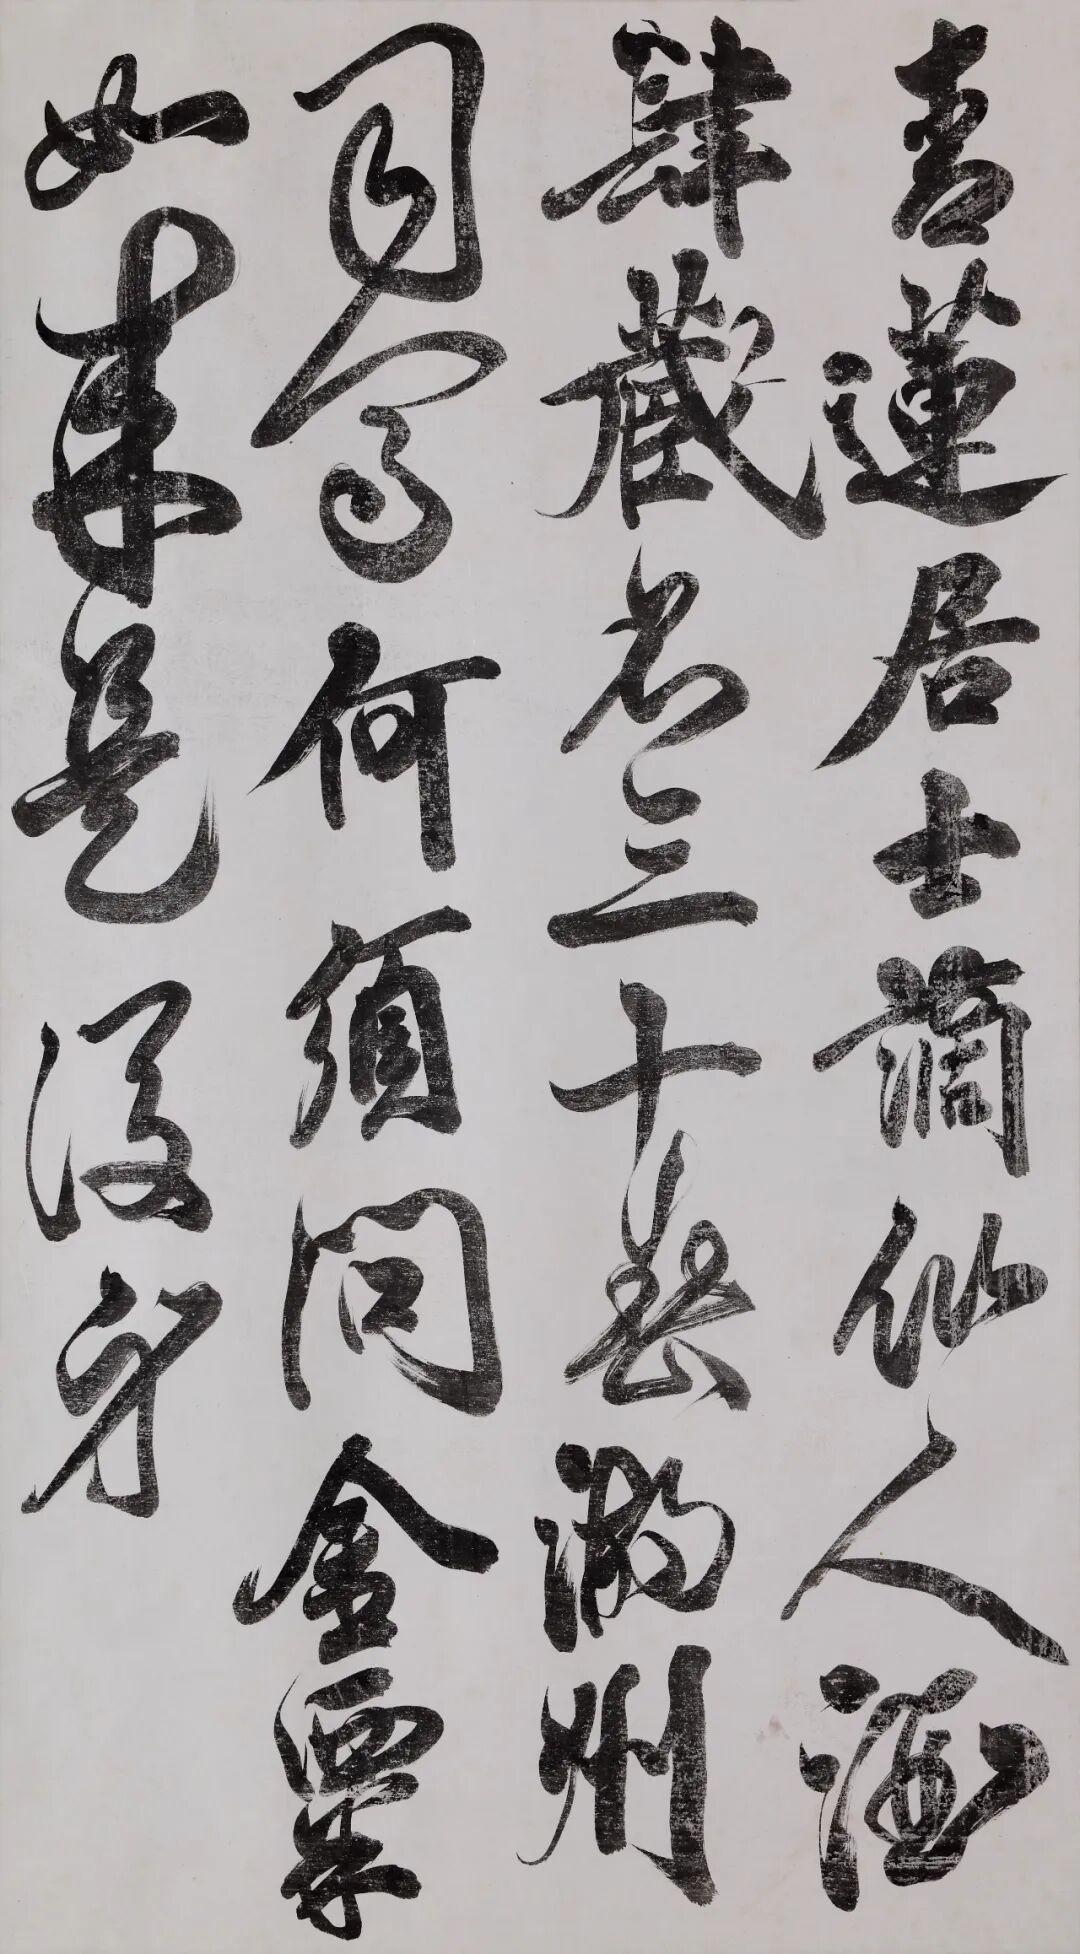 青蓮居士謫仙人酒
肆藏名三十春湖州
司馬何須問金粟
如来是後身